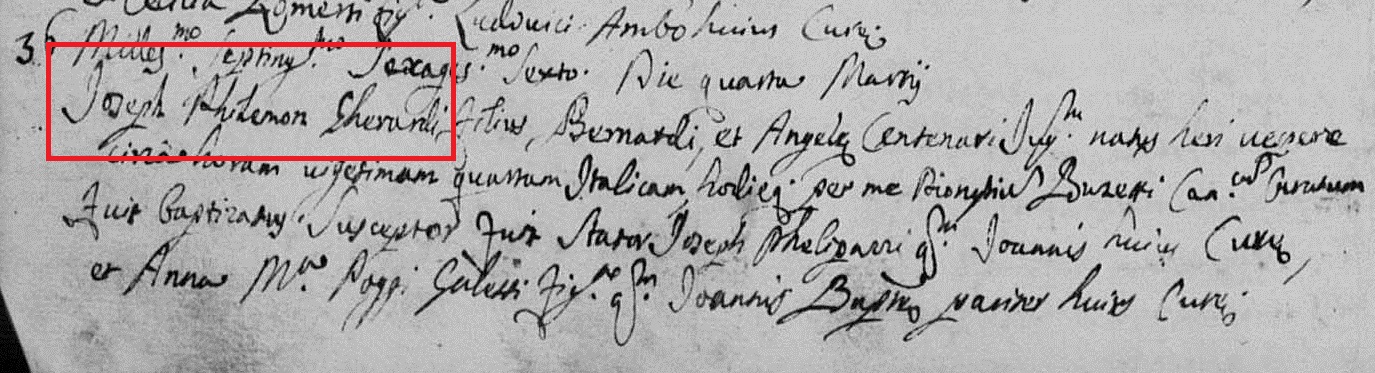 Ludovici Ambo huius Curę
36 Milles.mo Septing.mo Sexages.mo Sexto. Die quarta Martij
Joseph Philemon Gherardi filius Bernardi, et Angelę Centenari Jug.m natus heri vespere
circa horam vigesimam quartam Italicam, hodieq. per me Dionysiũ Buzetti Can.cum Curatum
fuit baptizatus. Susceptor fuit Joseph Philippazzi q.m Joannis huius Curę,
et Anna M.a Poggi Galessi q.m Joannis Baptę pariter huius Curę.